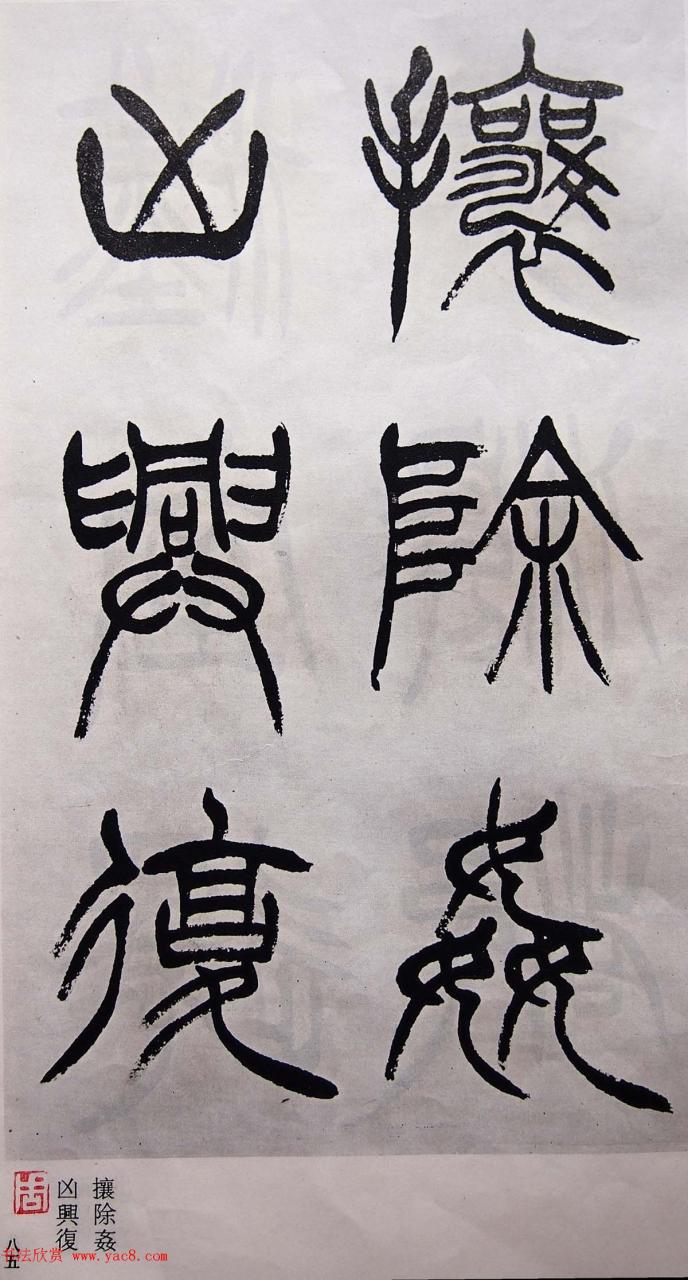 攘除姦
凶興復
攘除姦
凶興復
八五
书法欣赏 www.yac8.com